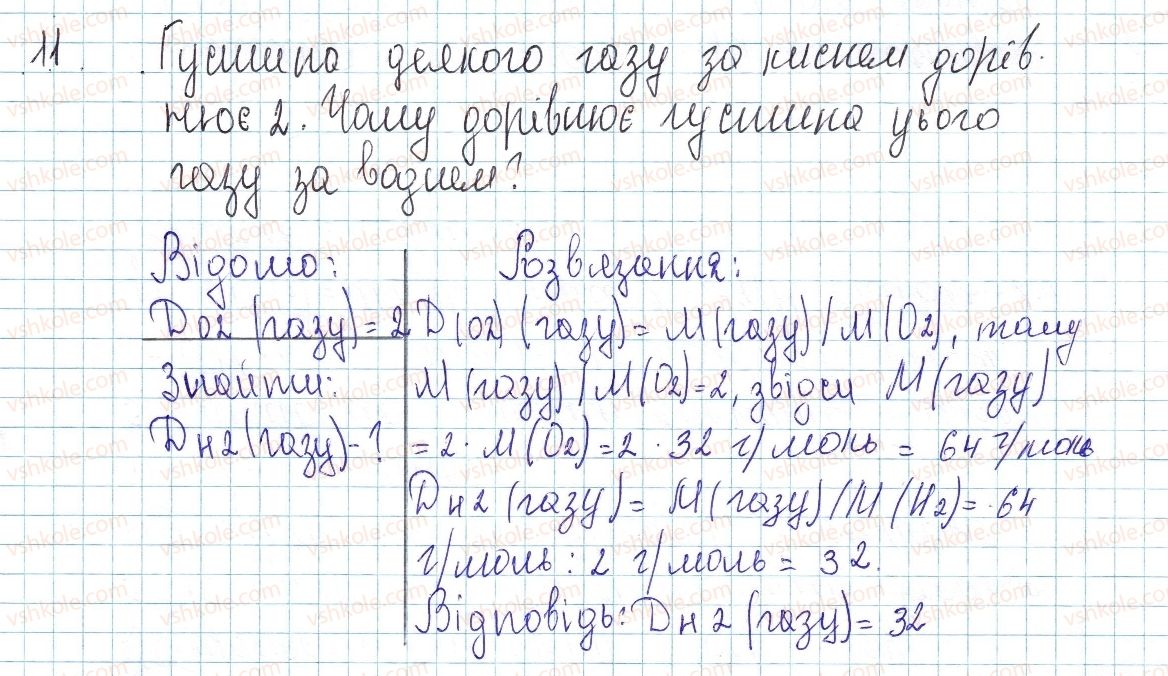 11. Густина деякого газу за киснем дорів-
нює 2. Чому дорівнює густина цього
газу за воднем?
Відомо:
D O2 (газу) = 2
Знайти:
D H2 (газу) - ?
Розв'язання:
D (O2) (газу) = M (газу) / M (O2), тому
M (газу) / M (O2) = 2, звідси M (газу)
= 2 · M (O2) = 2 · 32 г/моль = 64 г/моль
D H2 (газу) = M (газу) / M (H2) = 64
г/моль : 2 г/моль = 32.
Відповідь: D H2 (газу) = 32
vshkole.com